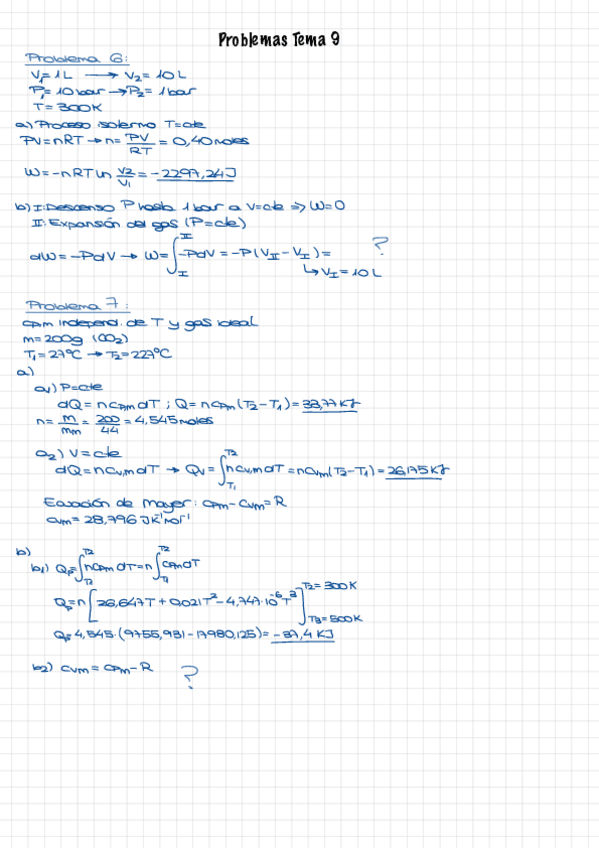 Problemas Tema 9
Problema 6:
V₁=1L → V₂=10L
P₁=10bar → P₂=1bar
T=300K
a) Proceso isotermo T=cte
PV=nRT → n= PV/RT = 0,40moles
W=-nRT ln V2/V1 = -2297,24J
b) I: Descenso P hasta 1bar a V=cte => W=0
II: Expansión del gas (P=cte)
dW=-PdV → W=∫_I^II -PdV = -P(V_II - V_I)= ?
↳ V_I=10L
Problema 7:
cpm independ. de T y gas ideal
m=200g (CO₂)
T₁=27ºC → T₂=227ºC
a)
a₁) P=cte
dQ=nCpmdT; Q=nCpm(T₂-T₁)=33,77KJ
n= m/mm = 200/44 = 4,545moles
a₂) V=cte
dQ=nCv,mdT → Qv=∫_T₁^T₂ nCv,mdT=nCvm(T₂-T₁)=26,175KJ
Ecuación de Mayer: Cpm-Cvm=R
Cvm=28,796 JK⁻¹mol⁻¹
b)
b₁) Qp=∫_T₁^T2 nCpm dT=n∫_T₁^T2 CpmdT
Qp=n[26,647T+0,021T²-4,747·10⁻⁶T³] T2=300K
T1=500K
Qp=4,545·(9755,931-17980,125)=-37,4KJ
b2) Cvm=Cpm-R ?